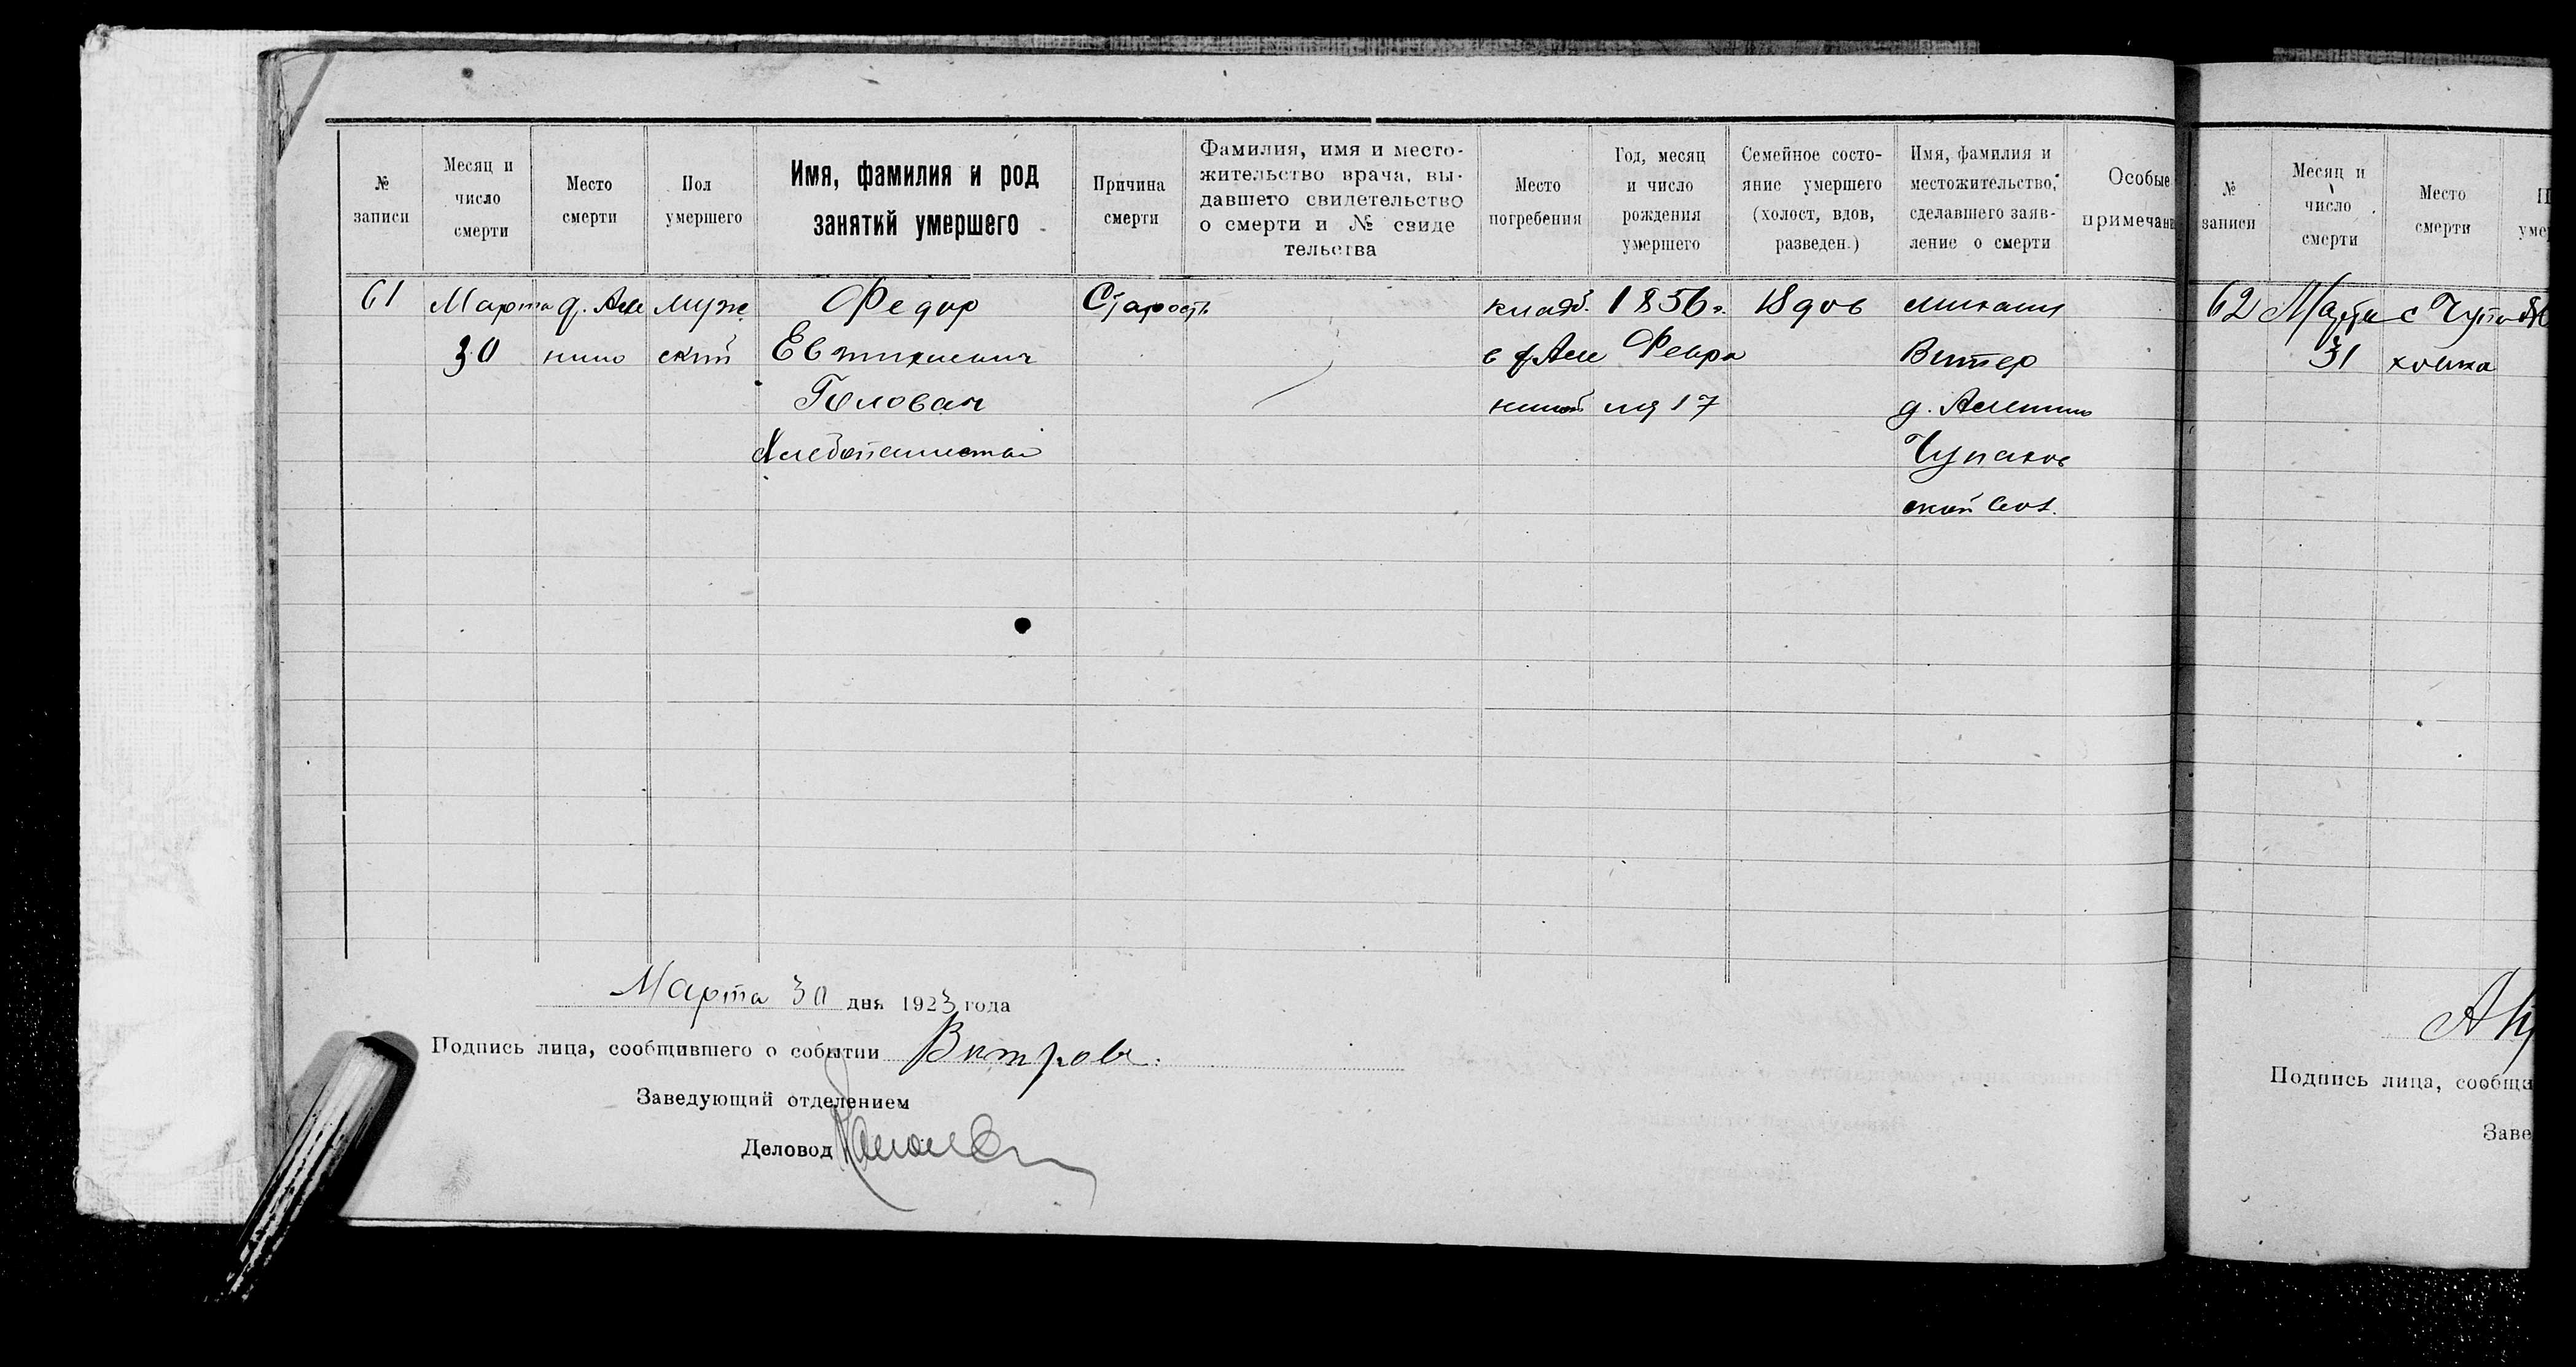 № записи
Месяц и число смерти
Место смерти
Пол умершего
Имя, фамилия и род занятий умершего
Причина смерти
Фамилия, имя и место-
жительство врача, вы-
давшего свидетельство
о смерти и № свиде
тельства
Место погребения
Год, месяц и число рождения умершего
Семейное состо-
яние умершего
(холост, вдов,
разведен.)
Имя, фамилия и
местожительство,
сделавшего заяв-
ление о смерти
Особые
примечани
61 Марта д. Але муж Федор Старость кладб. 1856 г. Вдов Михаил
30 кино ский Евтихиевич в д Але Февра Витер
Голован киной ля 17 д. Алекино
Хлебопашество Чупахов
ской вол.
Марта 30 дня 1923 года
Подпись лица, сообщившего о событии Витров
Заведующий отделением
Деловод
№ записи
Месяц и число смерти
Место смерти
П
уме
62 Марта с Чупа
31 ховка
Подпись лица, сообщи
Заве